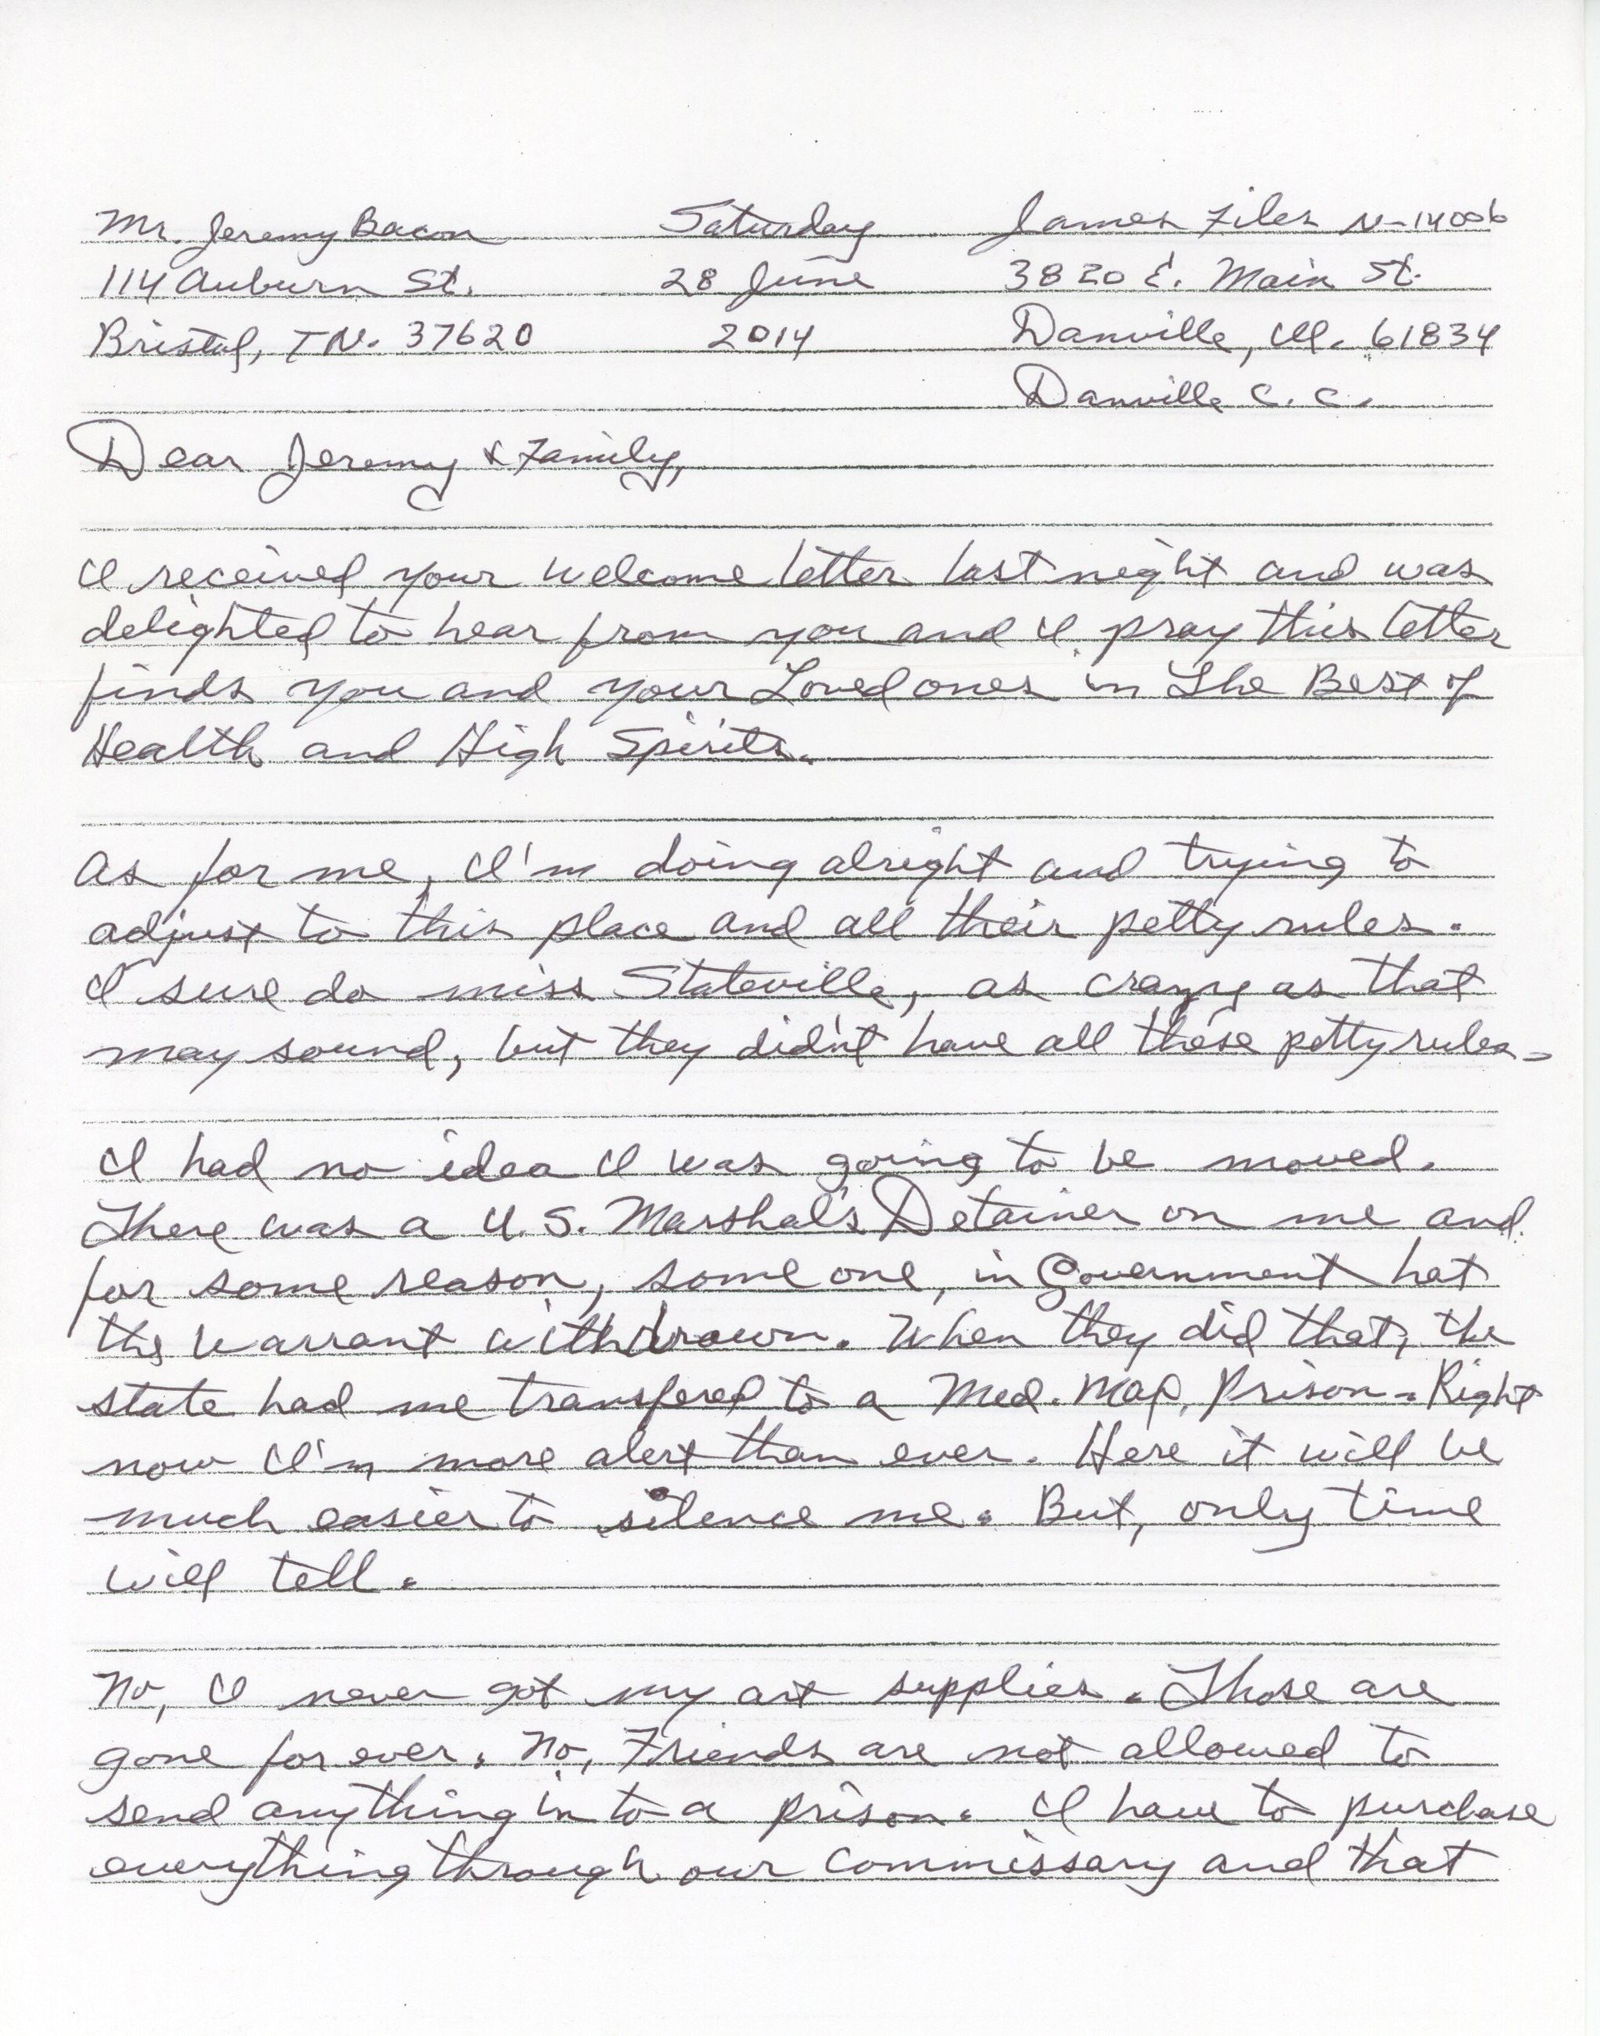 Mr. Jeremy Bacon Saturday James Files N-14006
114 Auburn St. 28 June 3820 E. Main St.
Bristol, TN. 37620 2014 Danville, Ill. 61834
Danville C.C.
Dear Jeremy & Family,
I received your welcome letter last night and was
delighted to hear from you and I pray this letter
finds you and your Loved ones in The Best of
Health and High Spirits.
As for me, I'm doing alright and trying to
adjust to this place and all their petty rules.
I sure do miss Stateville, as crazy as that
may sound, but they didn't have all these petty rules.
I had no idea I was going to be moved.
There was a U.S. Marshal's Detainer on me and
for some reason, some one, in Government hat
the warrant withdrawn. When they did that, the
state had me transfered to a Med. Map, Prison. Right
now I'm more alert than ever. Here it will be
much easier to silence me. But, only time
will tell.
No, I never got my art supplies. Those are
gone for ever. No, Friends are not allowed to
send anything in to a prison. I have to purchase
everything through our commissary and that